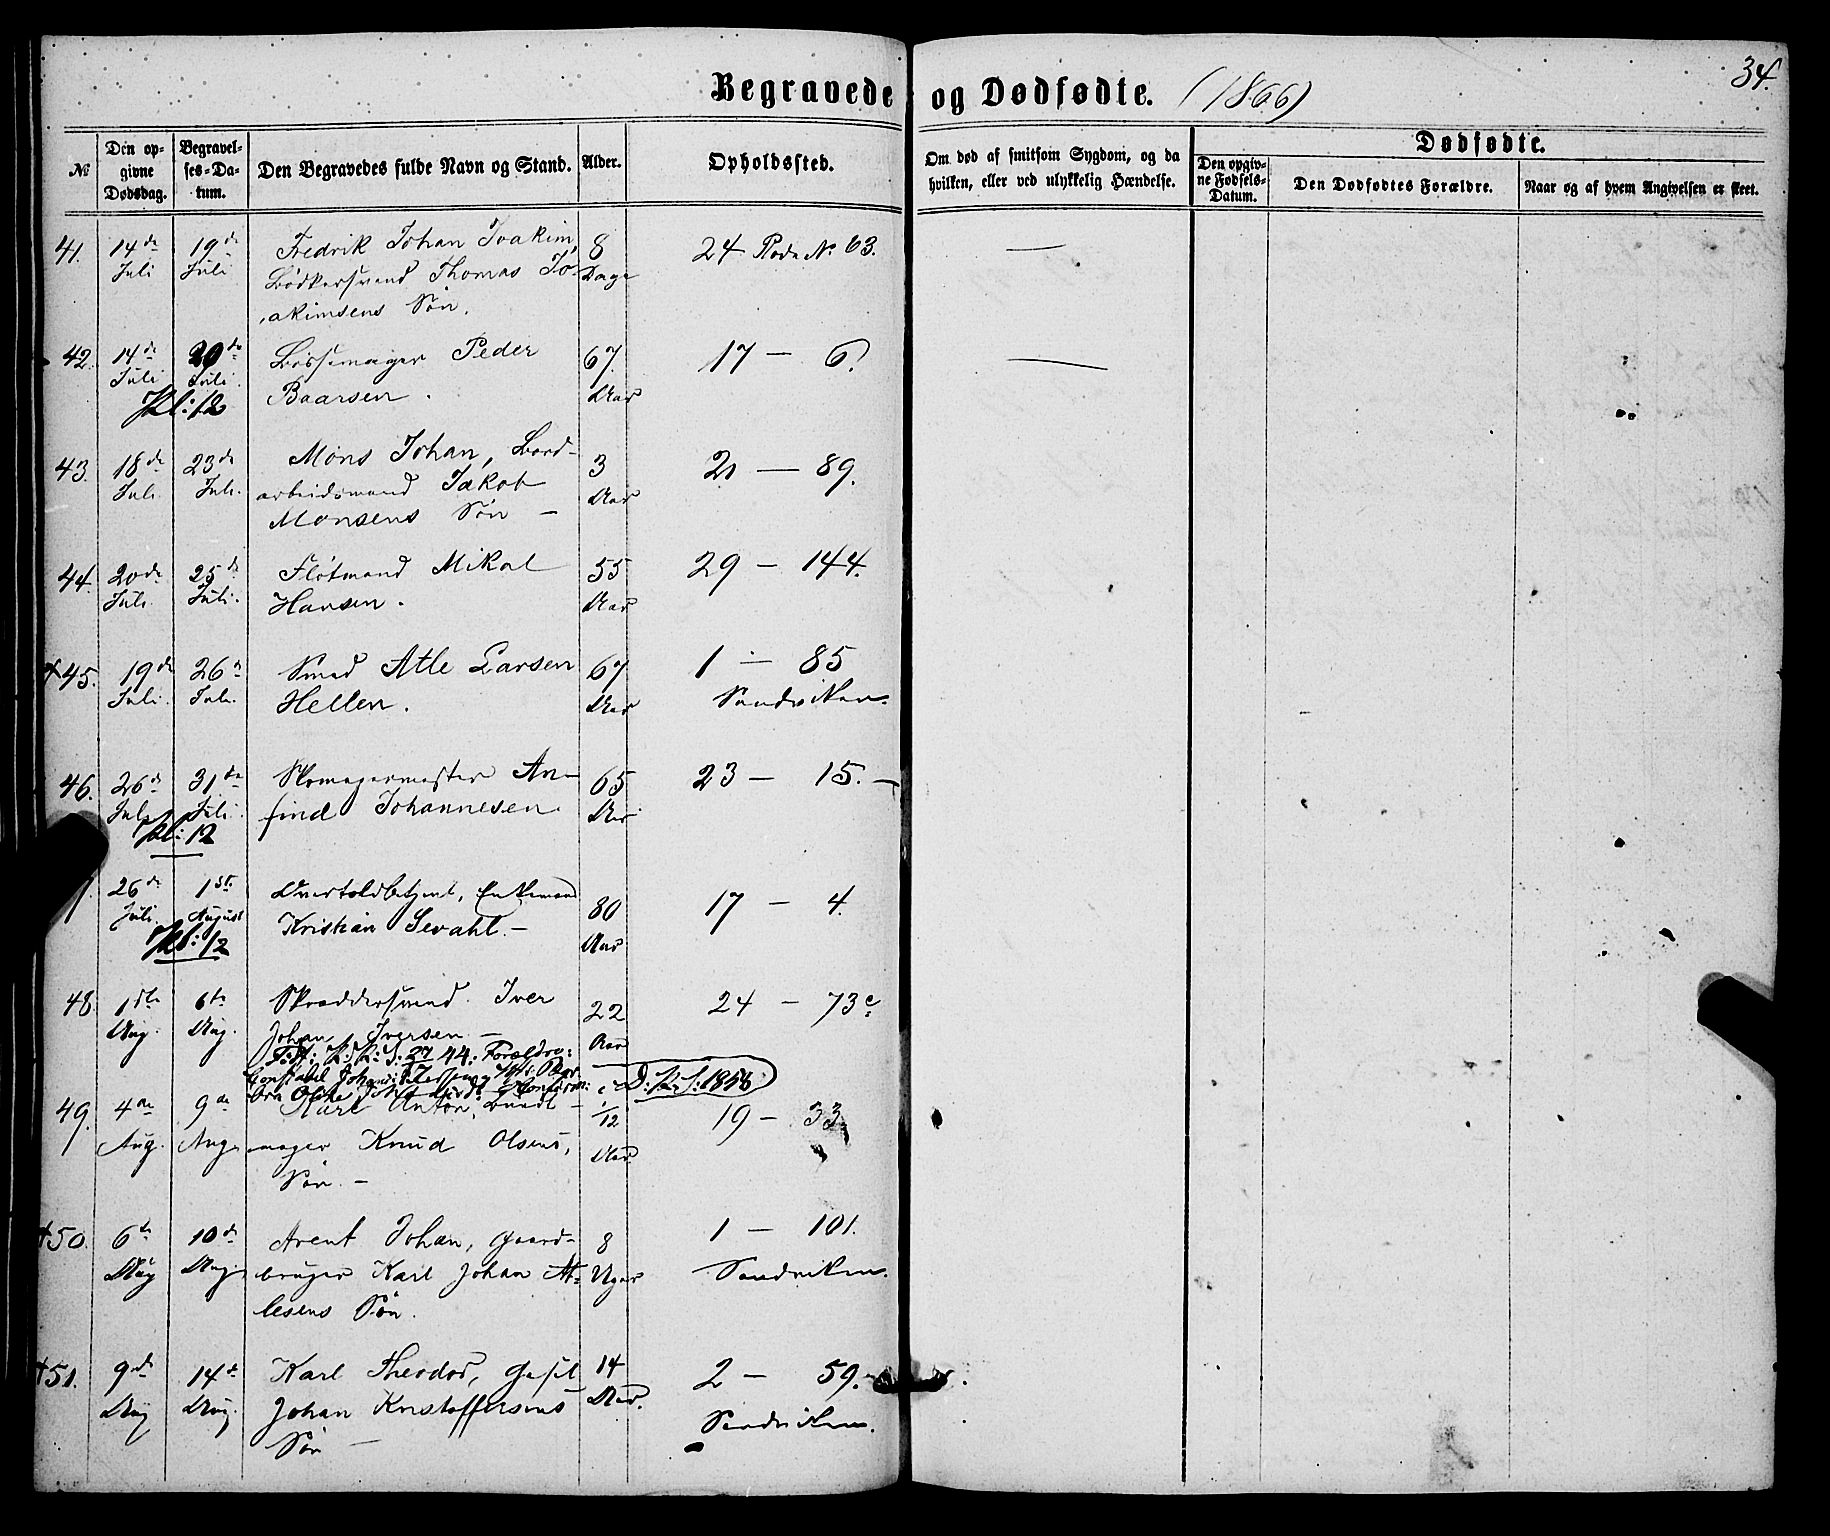 Begravede og Dødfødte. (1866)
34.
№
Den opgivne Dødsdag.
Begravelses-Datum.
Den Begravedes fulde Navn og Stand.
Alder.
Opholdssted.
Om død af smitsom Sygdom, og da hvilken, eller ved ulykkelig Hændelse.
Dødfødte.
Den opgivne Fødsels-Datum.
Den Dødfødtes Forældre.
Naar og af hvem Angivelsen er skeet.
41. 14de 19de Fredrik Johan Joakim, 8 24 Rode No 63. —
Juli Juli Bødkersvend Thomas Jo- Dage
akimsens Søn.
42. 14de 20de Bøssemager Peder 67. 17 — 6. —
Juli Juli. Baarsen. Aar
Kl: 12
43. 18de 23de Mons Johan, Bord- 3 21 — 89.
Juli Juli. arbeidsmand Jakob Aar
Monsens Søn —
44. 20de 25de Fløtmand Mikal 55 29 — 144.
Juli. Juli. Hansen. Aar
+45. 19de 26de Smed Atle Larsen 67 1 — 85
Juli. Juli. Hellen. Aar Sandviken.
46. 26de 31de Skomagermester An- 65 23 — 15. —
Juli Juli. find Johannesen Aar
Kl: 12
26de 1st. Overtoldbetjent, Enkemand 80 17 — 4.
Juli. August Kristian Sevahl. — Aar
Kl: 12
48. 1ste 6te Skræddersvend Iver 22 24 — 73c
Aug. Aug. Johan Iversen — Aar
27 44: Forældre:
D: K: S: 1858
49. 4de 9de Karl Anton, Bundt- 1/12 19 — 33
Aug. Aug. mager Knud Olsens, Aar
Søn. —
+50. 6te 10de Arent Johan, Gaard- 8 1 — 101.
Aug Aug. bruger Karl Johan At- Uger Sandviken.
lesens Søn.
+51. 9de 14de Karl Theodor, Gesel 14 2 — 59.
Aug Aug. Johan Kristoffersens Aar. Sandviken.
Søn —